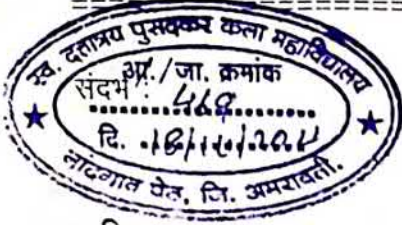 स्व. दत्तात्रय पुसदकर कला महाविद्यालय
आ./जा. क्रमांक
संदर्भ :
दि.
नांदगाव पेठ, जि. अमरावती.